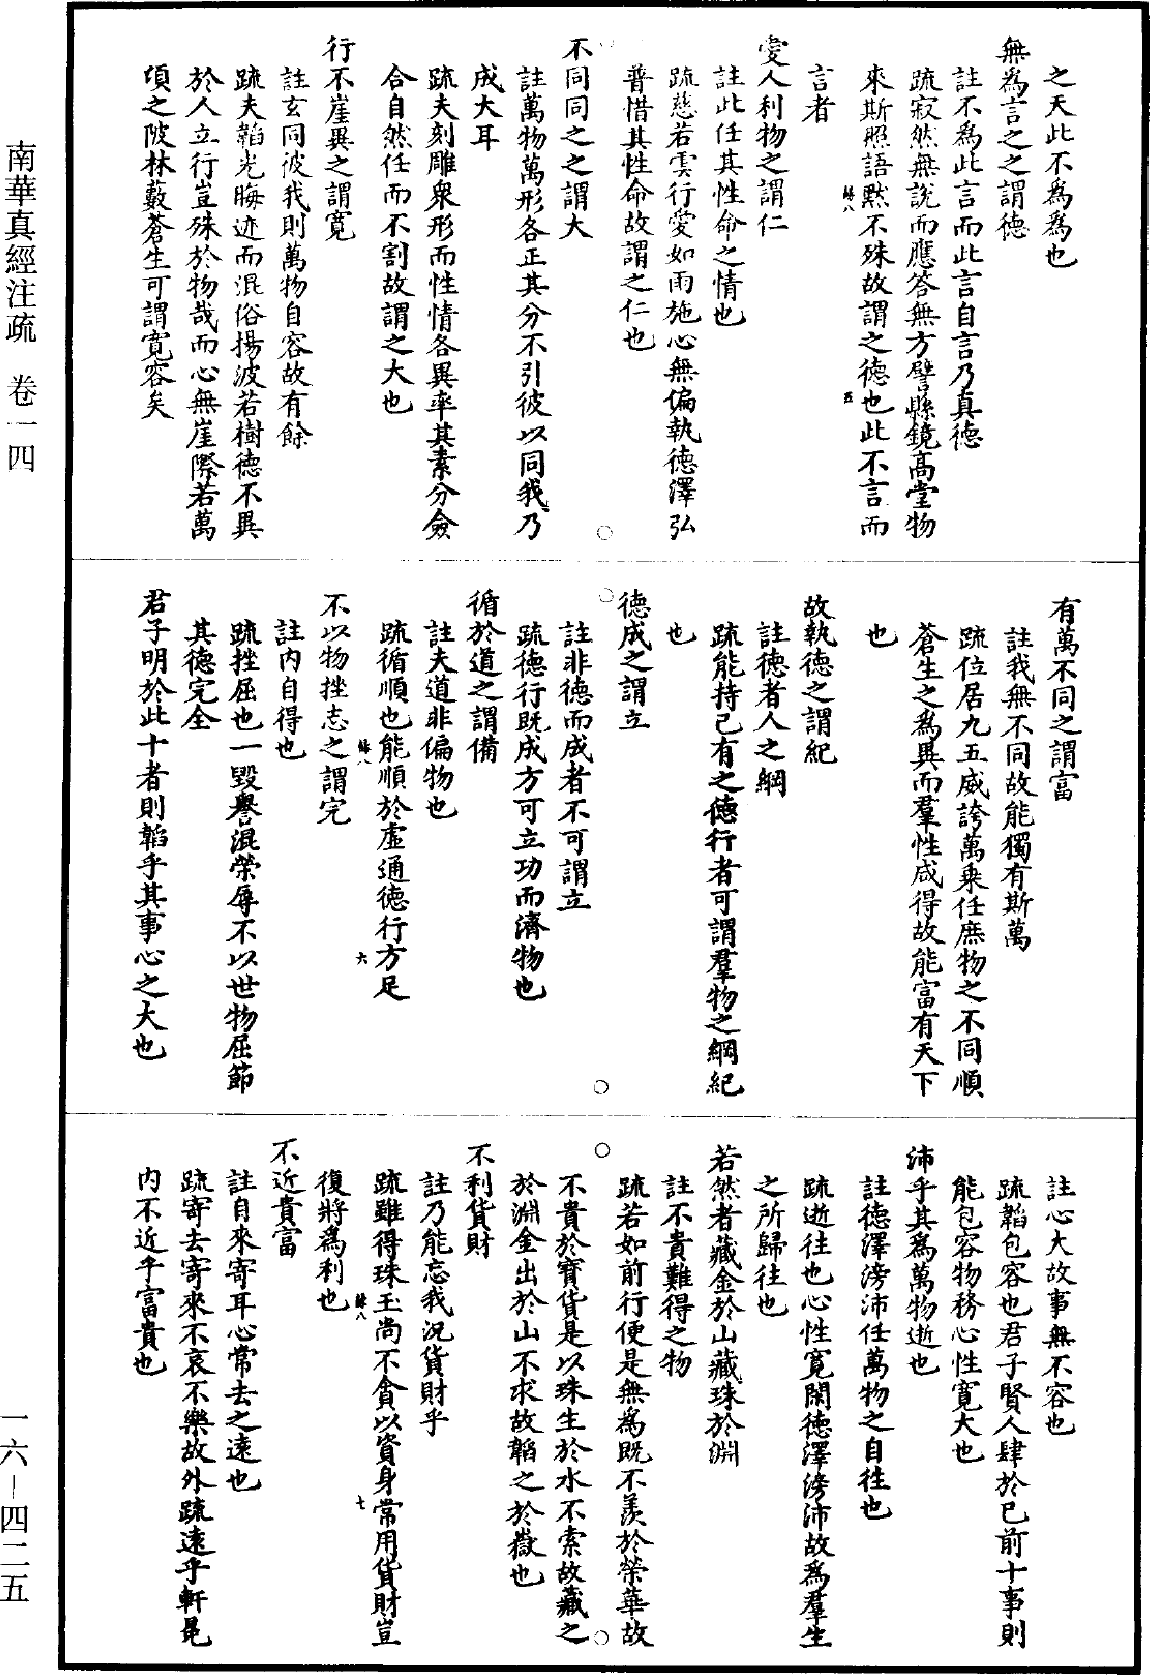 之天此不為為也
無為言之之謂德
註不為此言而此言自言乃真德
疏寂然無說而應答無方譬縣鏡高堂物
來斯照語默不殊故謂之德也此不言而
言者
愛人利物之謂仁
註此任其性命之情也
疏慈若雲行愛如雨施心無偏執德澤弘
普惜其性命故謂之仁也
不同同之之謂大
註萬物萬形各正其分不引彼以同我乃
成大耳
疏夫刻雕衆形而性情各異率其素分僉
合自然任而不割故謂之大也
行不崖異之謂寬
註玄同彼我則萬物自容故有餘
疏夫韜光晦迹而混俗揚波若樹德不異
於人立行豈殊於物哉而心無崖際若萬
頃之陂林藪蒼生可謂寬容矣
有萬不同之謂富
註我無不同故能獨有斯萬
疏位居九五威誇萬乘任庶物之不同順
蒼生之為異而羣性咸得故能富有天下
也
故執德之謂紀
註德者人之綱
疏能持已有之德行者可謂羣物之綱紀
也
德成之謂立
註非德而成者不可謂立
疏德行既成方可立功而濟物也
循於道之謂備
註夫道非偏物也
疏循順也能順於虛通德行方足
不以物挫志之謂完
註內自得也
疏挫屈也一毀譽混榮辱不以世物屈節
其德完全
君子明於此十者則韜乎其事心之大也
註心大故事無不容也
疏韜包容也君子賢人肆於已前十事則
能包容物務心性寬大也
沛乎其為萬物逝也
註德澤滂沛任萬物之自往也
疏逝往也心性寬閑德澤滂沛故為羣生
之所歸往也
若然者藏金於山藏珠於淵
註不貴難得之物
疏若如前行便是無為既不羨於榮華故
不貴於寶貨是以珠生於水不索故藏之
於淵金出於山不求故韜之於嶽也
不利貨財
註乃能忘我況貨財乎
疏雖得珠玉尚不貪以資身常用貨財豈
復將為利也
不近貴富
註自來寄耳心常去之遠也
疏寄去寄來不哀不樂故外疏遠乎軒冕
內不近乎富貴也
南華真經注疏 卷一四
一六—四二五